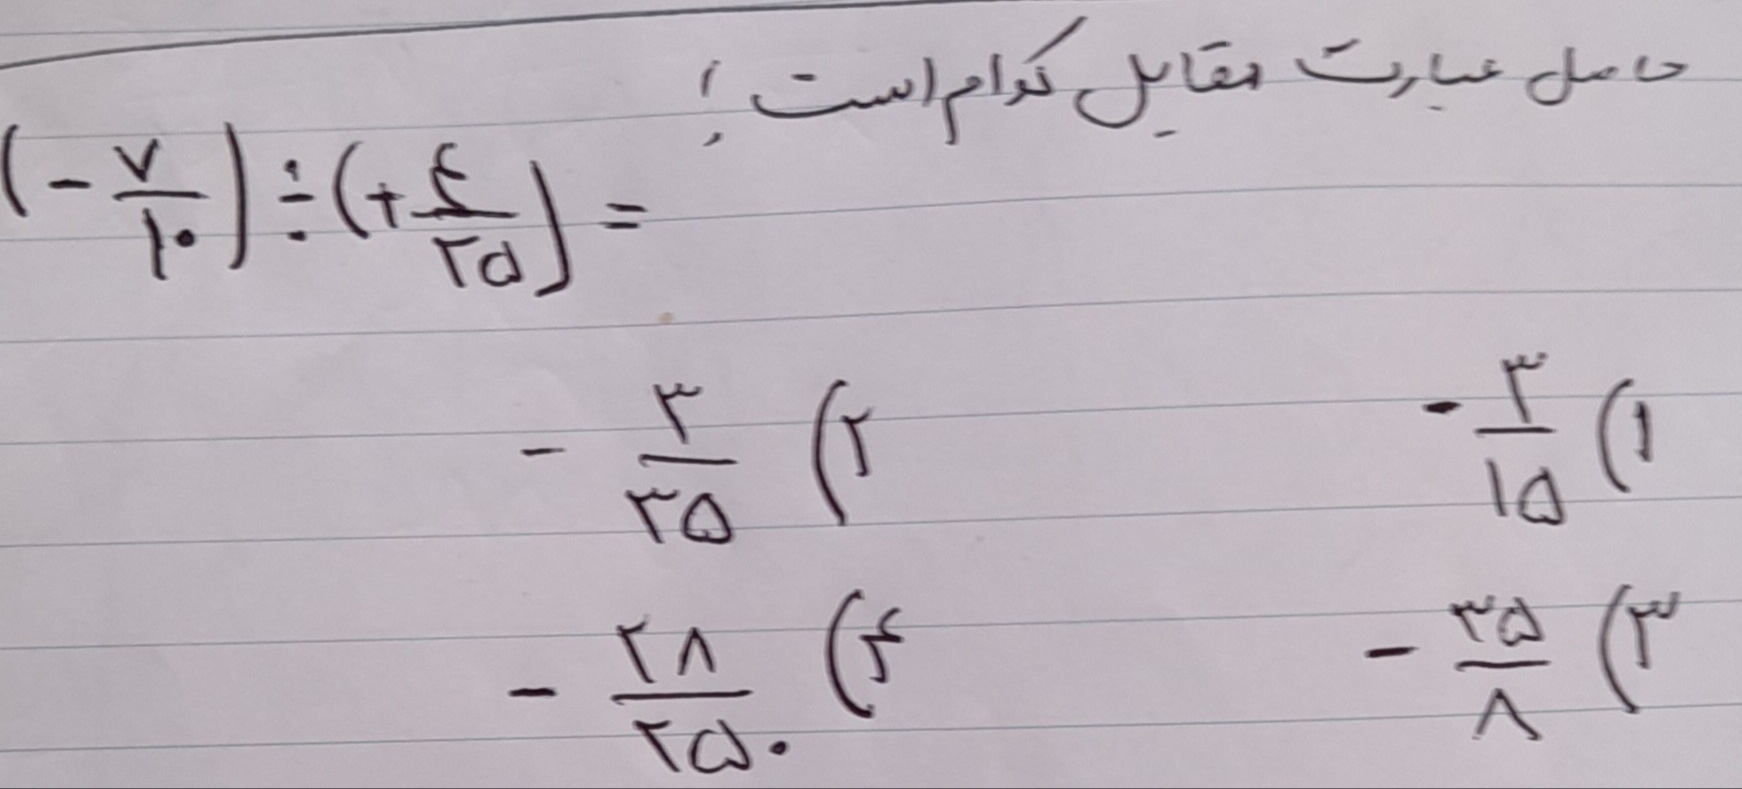 حاصل عبارت مقابل کدام است؟
(-۷/۱۰) ÷ (+۴/۲۵) =
۱) -۳/۱۵ ۲) -۳/۳۵
۳) -۳۵/۸ ۴) -۲۸/۲۵۰